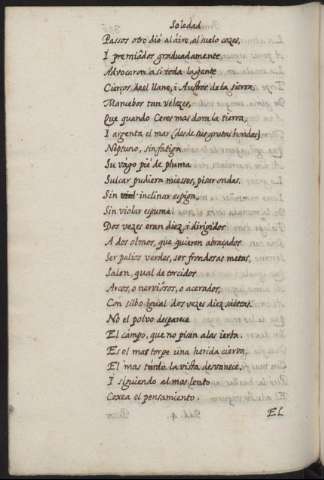 Soledad
Passos otro dio al aire, al suelo cozes,
I premiados graduadamente,
Advocaron a si toda la gente
Cierços del llano, i Austros de la sierra,
Mancebos tan velozes,
Que quando Ceres mas dora la tierra,
I argenta el mar (desde sus grutas hondas)
Neptuno, sin fatiga
Su vago pie de pluma
Surcar pudiera miesses, pisar ondas.
Sin inclinar espiga,
Sin violar espuma.
Dos vezes eran diez, i dirigidos
A dos olmos, que quieren abraçados
Ser palios verdes, ser frondosas metas,
Salen, qual de torcidos
Arcos, o nerviosos, o acerados,
Con silbo igual dos vezes diez saetas.
No el polvo desparece
El campo, que no pisan alas ierta
Es el mas torpe una herida cierta,
El mas tardo la vista desvanece,
I siguiendo al mas lento
Coxea el pensamiento.
EL